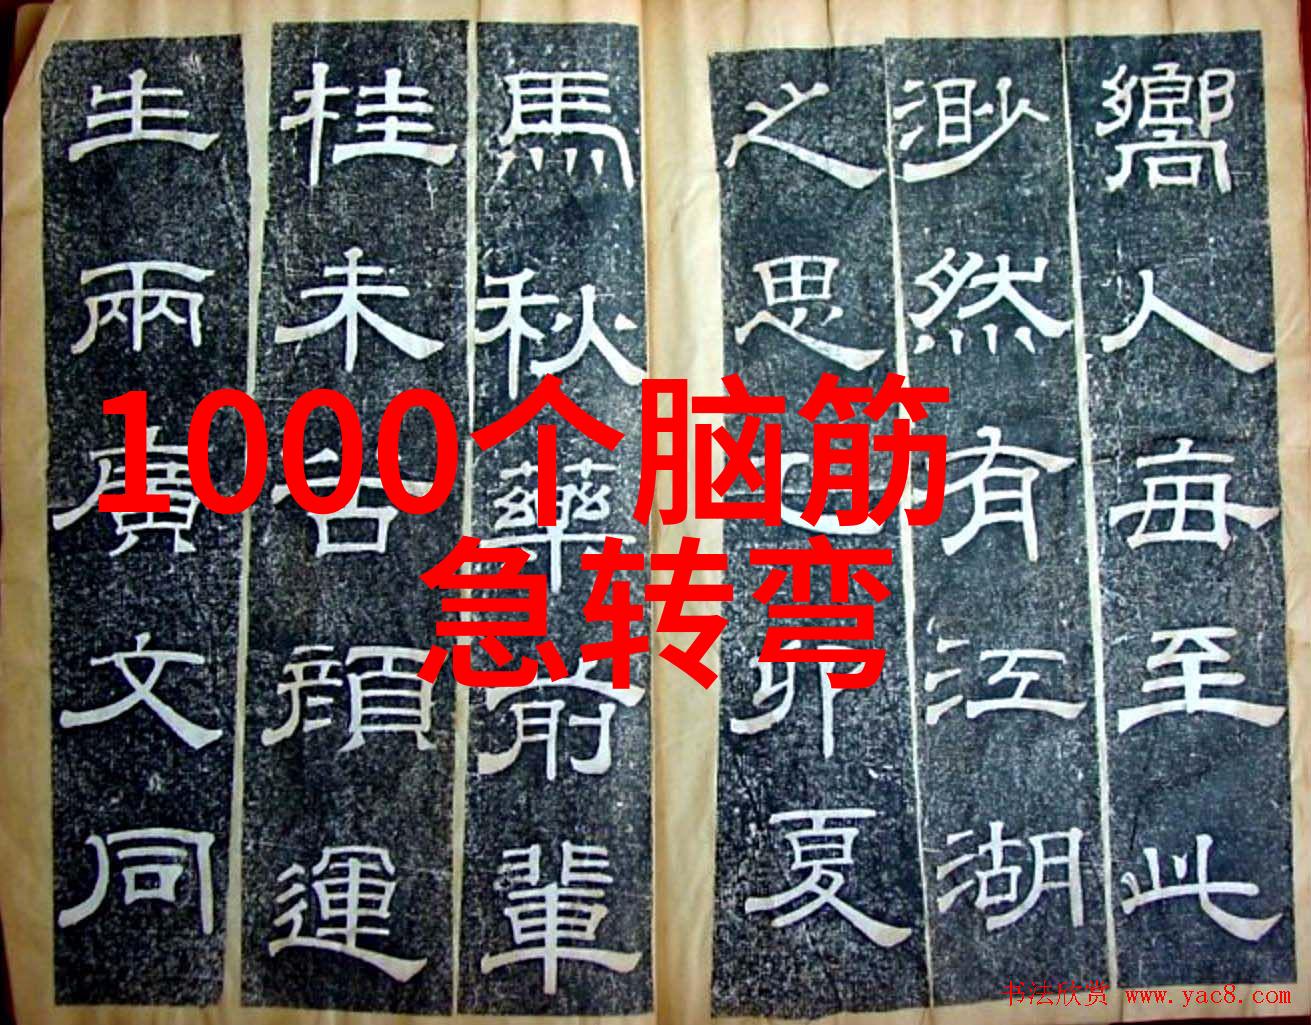 嚮人每至此
渺然有江湖
之思乙卯夏
馬秋藥前輩
桂未谷顏運
生兩廣文同
1000个脑筋
急转弯
书法欣赏 www.yac8.com